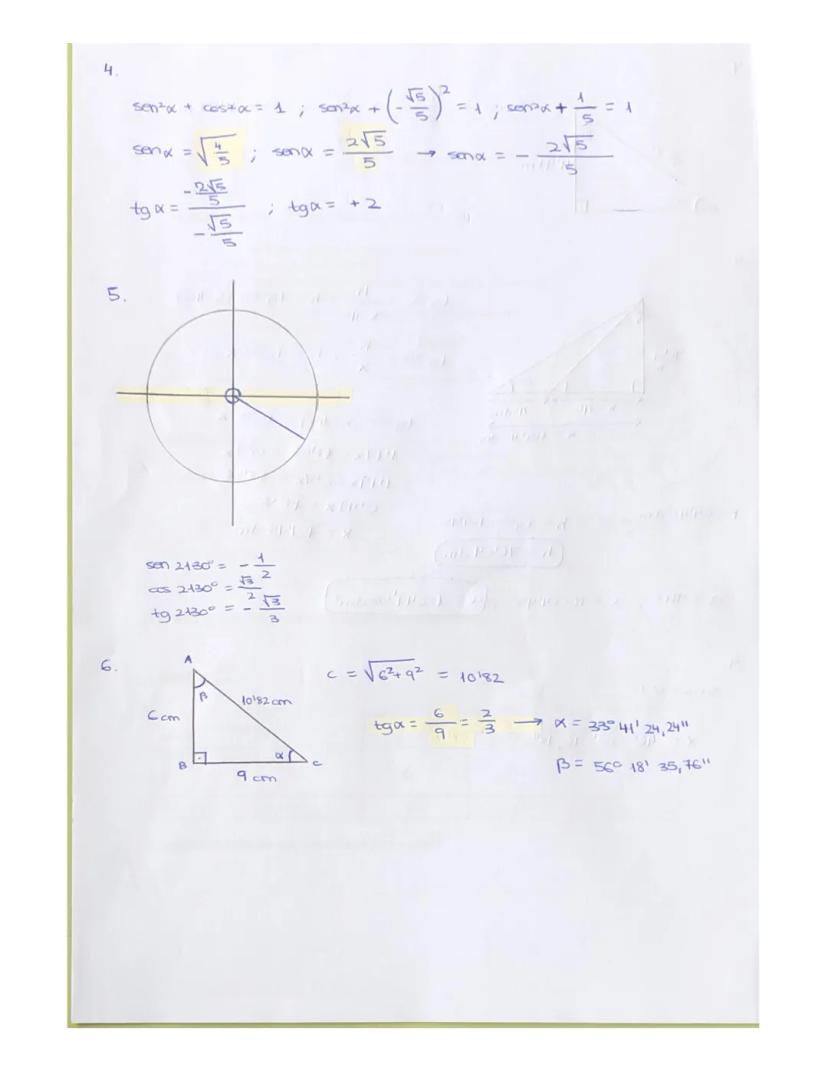 4.
sen²α + cos²α = 1 ; sen²α + (-√5/5)² = 1 ; sen²α + 1/5 = 1
senα = √(4/5) ; senα = 2√5/5 → senα = - 2√5/5
tgα = (-2√5/5)/(-√5/5) ; tgα = +2
5.
sen 2130° = - 1/2
cos 2130° = √3/2
tg 2130° = - √3/3
6.
A
β
6 cm
10'82 cm
B
α
C
9 cm
C = √(6²+9²) = 10'82
tgα = 6/9 = 2/3 → α = 33° 41' 24,24''
β = 56° 18' 35,76''